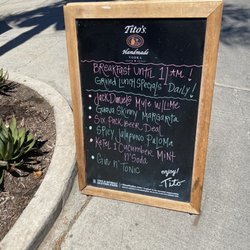 Tito's
Handmade
VODKA
Breakfast until 11am!
Grilled Lunch Specials - Daily!
• Jack Daniels Mule w/Lime
• Guava Skinny Margarita
• Six Pack Beer Deal
• Spicy Jalapeno Paloma
• Ketel 1 Cucumber Mint
n' Soda
• Gin n' Tonic
enjoy!
Tito